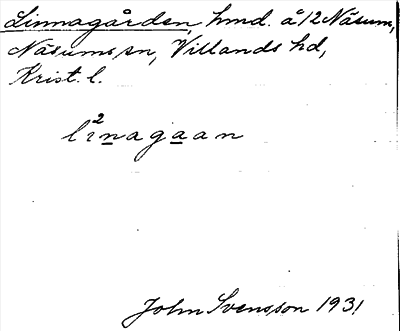 Linnagården, hmd. å 12 Näsum,
Näsums sn, Villands hd,
Krist. l.
lı²nagaan
John Svensson 1931